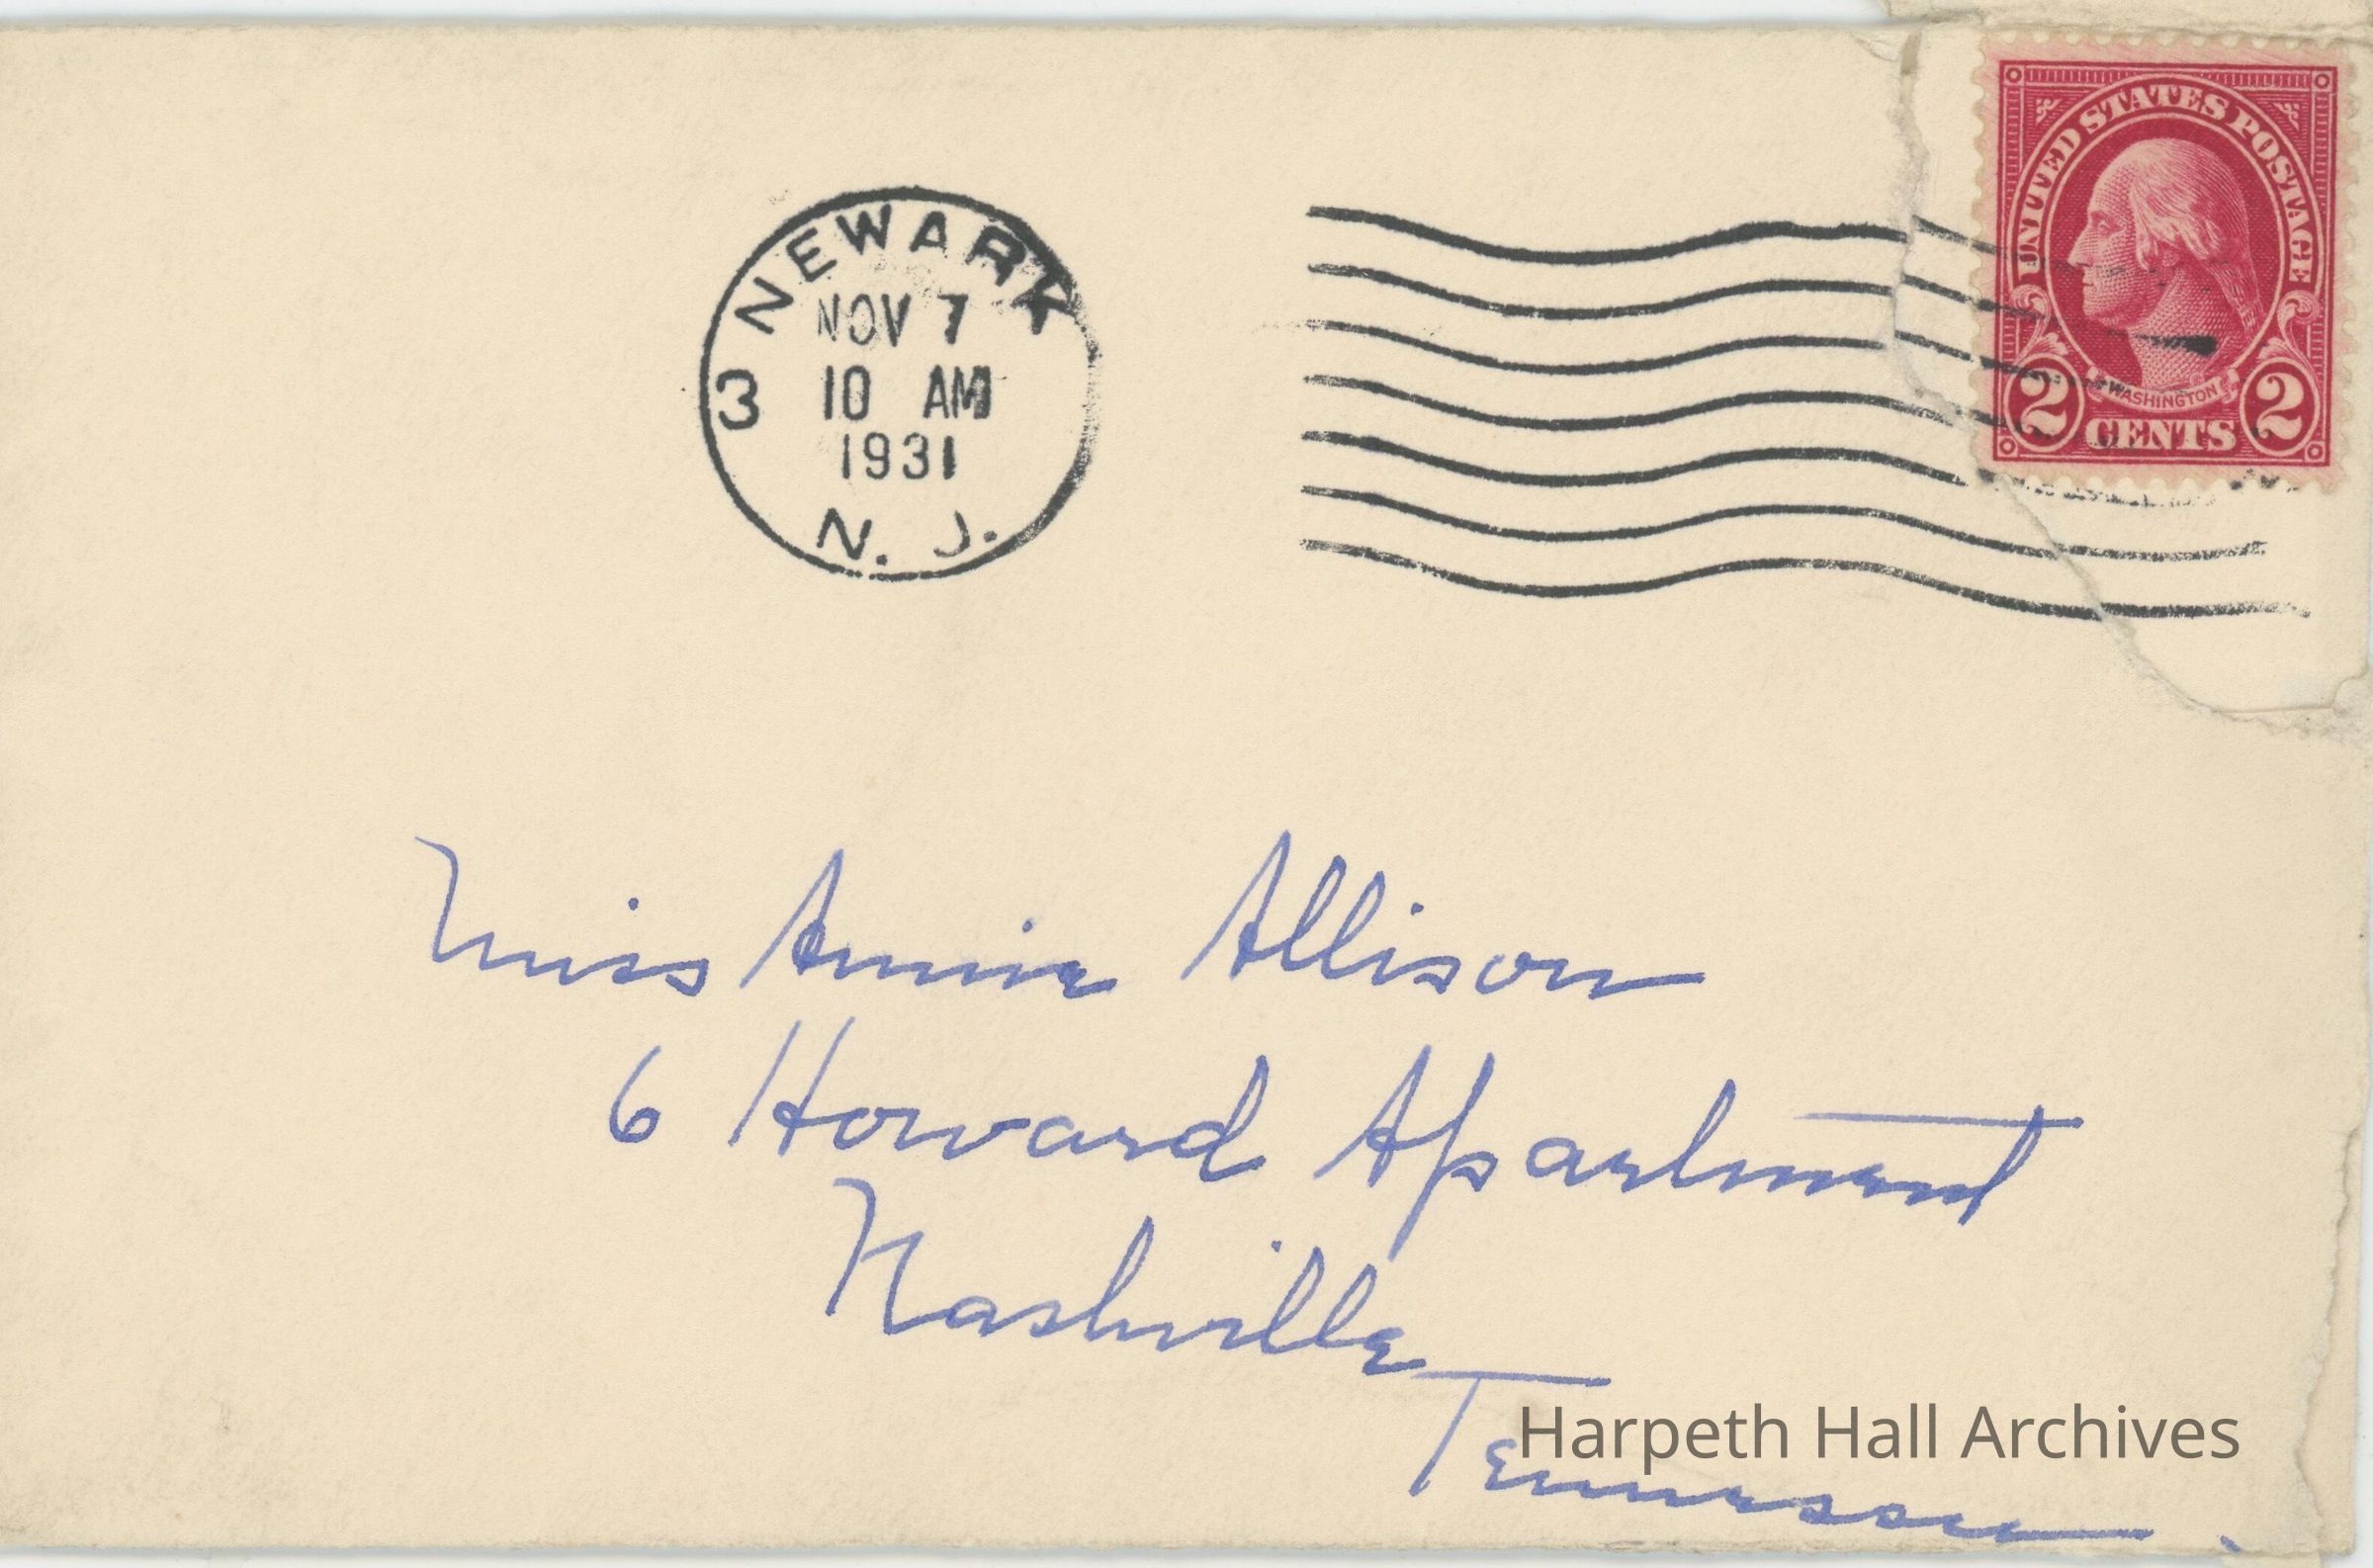 UNITED STATES POSTAGE
WASHINGTON
2 CENTS 2
NEWARK
NOV 7
3 10 AM
1931
N. J.
Miss Annie Allison
6 Howard Apartment
Nashville
Tennessee.
Harpeth Hall Archives